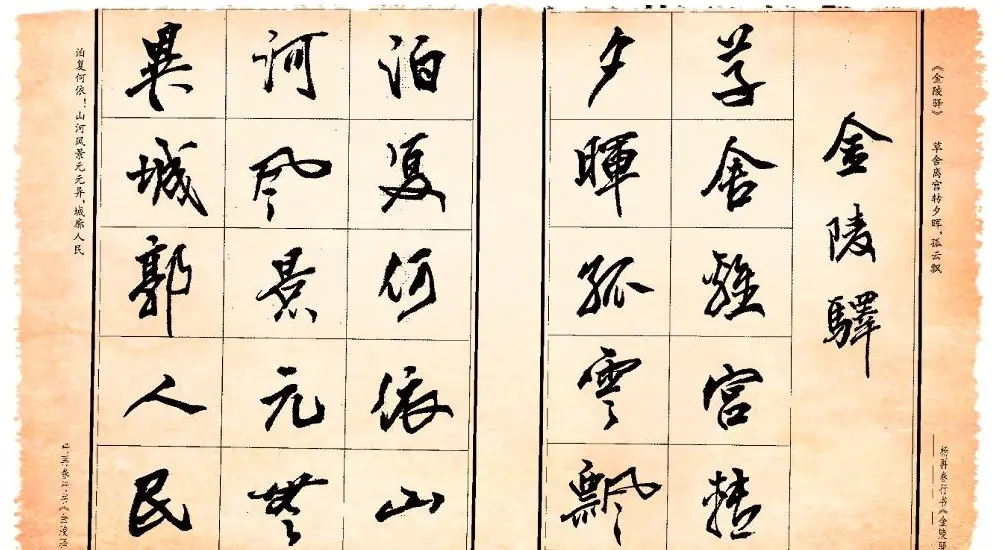 《金陵驿》 草舍离宫转夕晖，孤云飘
杨再春行书《金陵驿
金陵驛
草舍離宮轉
夕暉孤雲飄
泊复何依山
河風景元無
異城郭人民
泊复何依！山河风景元元异，城廓人民